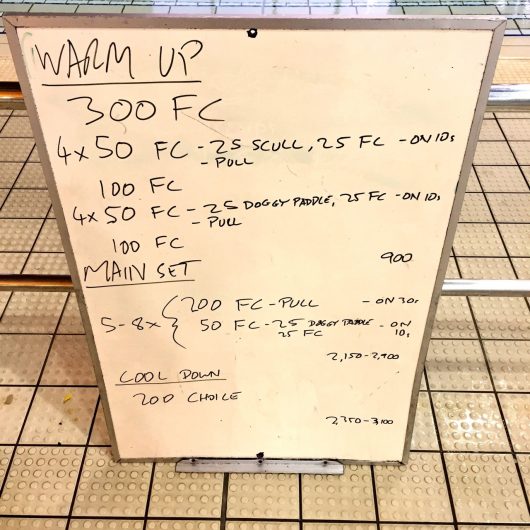 WARM UP
300 FC
4x50 FC - 25 SCULL, 25 FC - ON 10s
- PULL
100 FC
4x50 FC - 25 DOGGY PADDLE, 25 FC - ON 10s
- PULL
100 FC
900
MAIN SET
5-8x { 200 FC - PULL - ON 30s
50 FC - 25 DOGGY PADDLE - ON
25 FC 10s
2,150-2,900
COOL DOWN
200 CHOICE
2,350-3,100